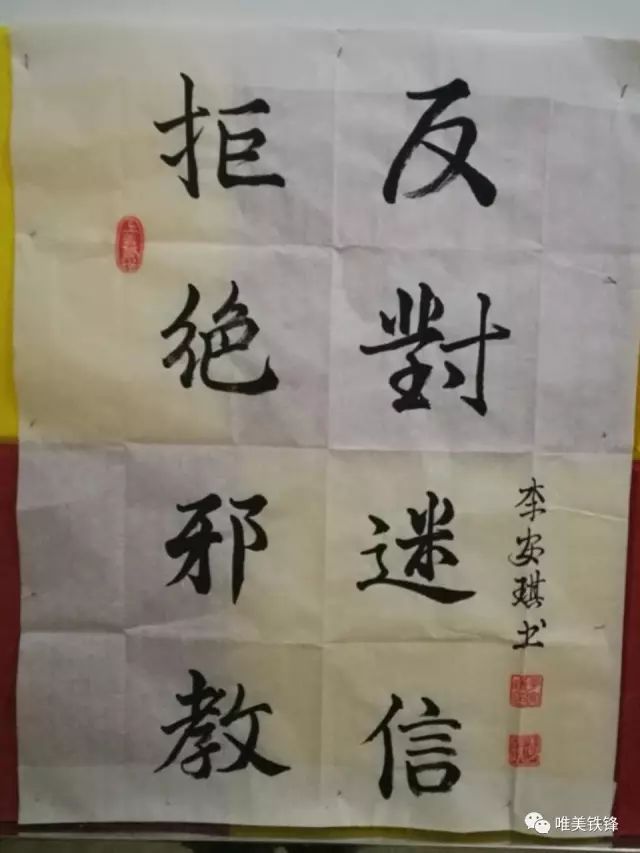 反對迷信
拒绝邪教
李安琪书
唯美铁锋